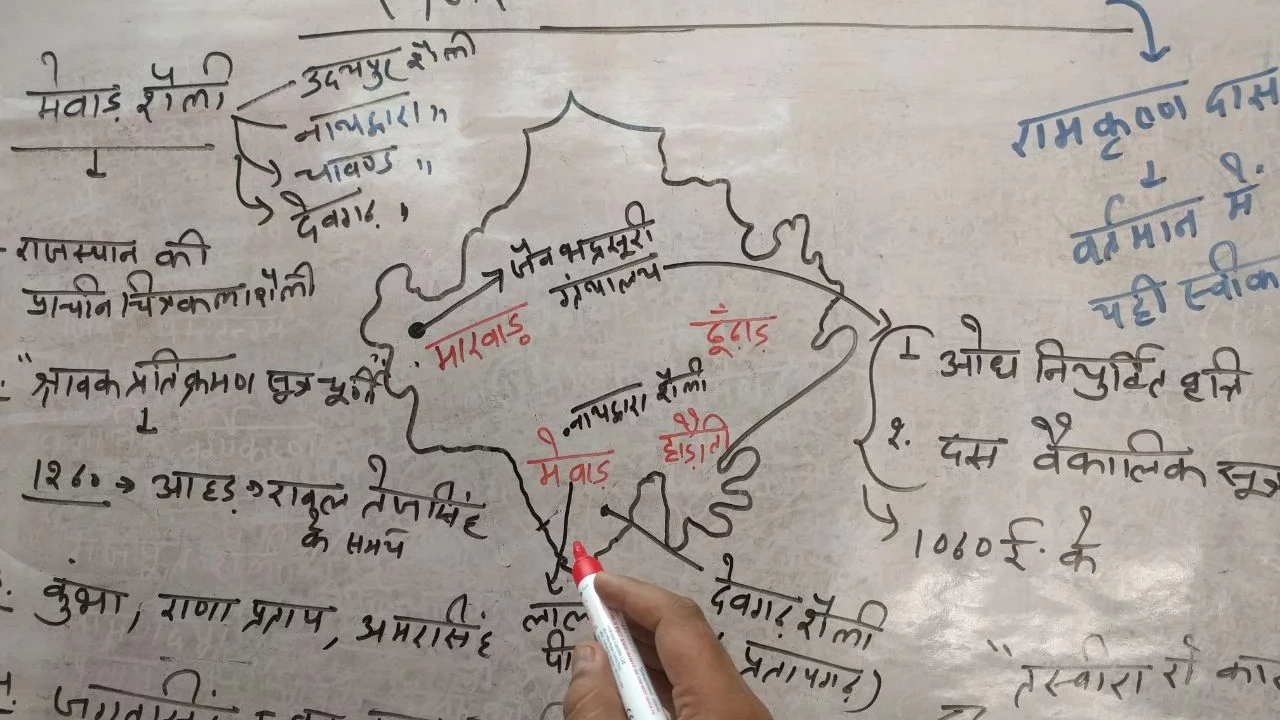 मेवाड़ शैली
उदयपुर शैली
नाथद्वारा "
चावण्ड "
देवगढ़ "
राजस्थान की
प्राचीन चित्रकला शैली
"श्रावक प्रतिक्रमण सूत्र चूर्णि"
1260 → आहड़ → रावल तेजसिंह
के समय
कुंभा, राणा प्रताप, अमरसिंह
जगतसिंह
जैनभद्रसूरी
ग्रंथालय
मारवाड़
ढूँढाड़
नाथद्वारा शैली
मेवाड़
हाड़ौती
लाल
पी
देवगढ़ शैली
प्रतापगढ़)
रामकृष्ण दास
वर्तमान में
यही स्वीका
1 ओध नियुर्क्ति वृत्ति
2. दस वैकालिक सूत्र
1060 ई. के
"तस्वीरा रो कार